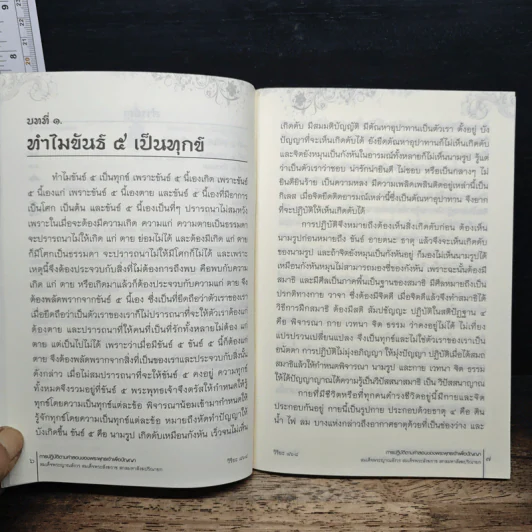 บทที่ ๑.
ทำไมขันธ์ ๕ เป็นทุกข์
ทำไมขันธ์ ๕ เป็นทุกข์ เพราะขันธ์ ๕ นี้เองเกิด เพราะขันธ์
๕ นี้เองแก่ เพราะขันธ์ ๕ นี้เองตาย และขันธ์ ๕ นี้เองที่มีอาการ
เป็นโศก เป็นต้น และขันธ์ ๕ นี้เองเป็นที่ๆ ปรารถนาไม่สมหวัง
เพราะในเมื่อจะต้องมีความเกิด ความแก่ ความตายเป็นธรรมดา
จะปรารถนาไม่ให้เกิด แก่ ตาย ย่อมไม่ได้ และต้องมีเกิด แก่ ตาย
ก็มีโศกเป็นธรรมดา จะปรารถนาไม่ให้มีโศกก็ไม่ได้ และเพราะ
เหตุนี้จึงต้องประจวบกับสิ่งที่ไม่ต้องการถึงพบ คือพบกับความเกิด
แก่ ตาย หรือเกิดมาแล้วก็ต้องประจวบกับความแก่ ตาย จึง
ต้องพลัดพรากจากขันธ์ ๕ นี้เอง ซึ่งเป็นที่ยึดถือว่าตัวเราของเรา
เมื่อยึดถือว่าเป็นตัวเราของเราก็ไม่ปรารถนาที่จะให้ตัวเราต้องแก่
ต้องตาย และปรารถนาที่ให้คนที่เป็นที่รักทั้งหลายไม่ต้อง แก่
ตาย แต่เป็นไปไม่ได้ เพราะว่าเมื่อมีขันธ์ ๕ ขันธ์ ๕ นี้ก็ต้องแก่
ตาย จึงต้องพลัดพรากจากสิ่งที่เป็นของเราและประจวบกับสิ่งนั้น
ดังกล่าว เมื่อไม่สมปรารถนาที่จะให้ขันธ์ ๕ คงอยู่ ความทุกข์
ทั้งหมดจึงรวมอยู่ที่ขันธ์ ๕ พระพุทธเจ้าจึงตรัสให้กำหนดให้รู้
ทุกข์โดยความเป็นทุกข์แต่ละข้อ พิจารณาน้อมเข้ามากำหนดให้
รู้จักทุกข์โดยความเป็นทุกข์แต่ละข้อ หมายถึงหัดทำปัญญาให้
บังเกิดขึ้น ขันธ์ ๕ คือ นามรูป เกิดดับเหมือนกังหัน เร็วจนไม่เห็น
๖ การปฏิบัติตามคำสอนของพระพุทธเจ้าเพื่อปัญญา
เกิดดับ มีสมมติบัญญัติ มีตัณหาอุปาทานเป็นตัวเรา ตั้งอยู่ บัง
ปัญญาที่จะเห็นเกิดดับได้ ยังยึดตัณหาอุปาทานก็ไม่เห็นเกิดดับ
และจิตยังหมุนเป็นกังหันในอารมณ์ทั้งหลายก็ไม่เห็นนามรูป รู้แต่
ว่าเป็นตัวเราว่าชอบ น่ารักน่ายินดี ไม่ชอบ หรือเป็นกลางๆ ไม่
ยินดียินร้าย เป็นความหลง มีความเพลิดเพลินติดอยู่เหล่านี้เป็น
กิเลส เมื่อจิตยึดติดอารมณ์เหล่านี้ซึ่งเป็นตัณหาอุปาทาน จึงยาก
ที่จะปฏิบัติให้เห็นเกิดดับได้
การปฏิบัติจึงหมายถึงต้องเห็นสิ่งเกิดดับก่อน ต้องเห็น
นามรูปก่อนหมายถึง ขันธ์ อายตนะ ธาตุ แล้วจึงจะเห็นเกิดดับ
ของนามรูป และถ้าจิตยังหมุนเป็นกังหันอยู่ ก็มองไม่เห็นนามรูปได้
เหมือนกังหันหมุนไม่สามารถมองชี่ของกังหัน เพราะฉะนั้นต้องมี
สมาธิ และมีศีลเป็นภาคพื้นเป็นฐานของสมาธิ มีศีลหมายถึงเป็น
ปรกติทางกาย วาจา ซึ่งต้องมีจิตดี เมื่อจิตดีแล้วจึงทำสมาธิได้
วิธีการฝึกสมาธิ ต้องมีสติ สัมปชัญญะ ปฏิบัติในสติปัฏฐาน ๔
คือ พิจารณา กาย เวทนา จิต ธรรม ว่าคงอยู่ไม่ได้ ไม่เที่ยง
แปรปรวนเปลี่ยนแปลง จึงเป็นทุกข์และไม่ใช่ตัวเราของเราเป็น
อนัตตา การปฏิบัติไม่มุ่งอภิญญา ให้มุ่งปัญญา ปฏิบัติเมื่อได้สมถ
สมาธิแล้วให้กำหนดพิจารณา นามรูป และกาย เวทนา จิต ธรรม
ให้ได้ปัญญาญาณได้ความรู้เป็นวิปัสสนาสมาธิ เป็น วิปัสสนาญาณ
กายที่มีชีวิตหรือที่ทุกคนดำรงชีวิตอยู่นี้มีกายและจิต
ประกอบกันอยู่ กายนี้เป็นรูปกาย ประกอบด้วยธาตุ ๔ คือ ดิน
น้ำ ไฟ ลม บางแห่งกล่าวถึงอากาศธาตุด้วยที่เป็นช่องว่าง และ
การปฏิบัติตามคำสอนของพระพุทธเจ้าเพื่อปัญญา ๗